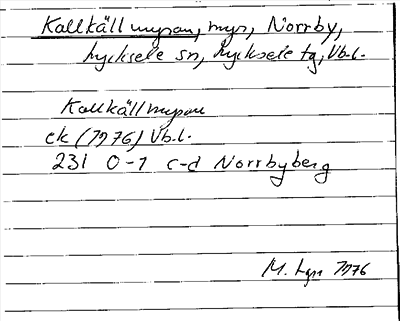 Kallkällmyran, myr, Norrby,
Lycksele sn, Lycksele tg, Vb.l.
Kallkällmyran
ek (1976) Vb.l.
231 0-1 c-d Norrbyberg
M. 1976